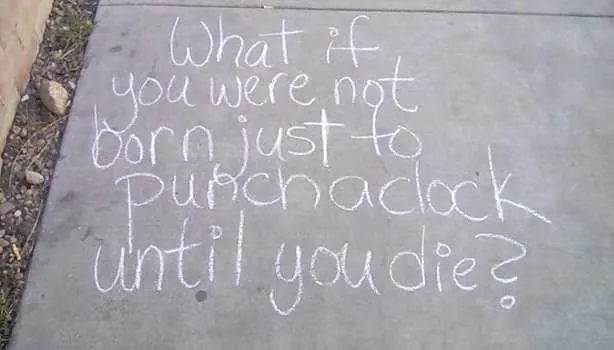 What if
you were not
born just to
punch a clock
until you die?